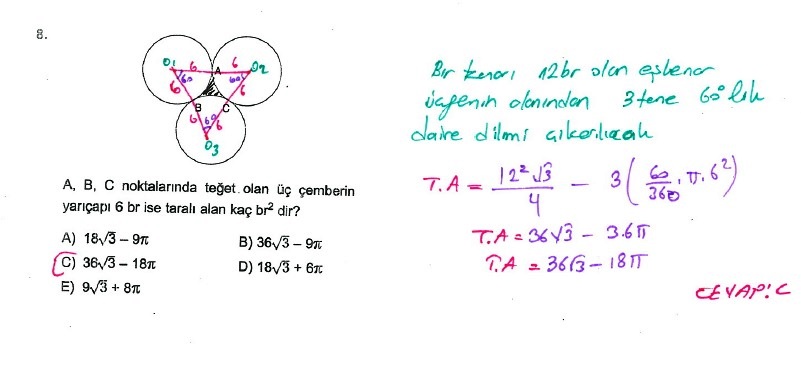 8.
O1 6 6 O2
A
60 60
6 6
B C
6 60 6
O3
A, B, C noktalarında teğet olan üç çemberin
yarıçapı 6 br ise taralı alan kaç br² dir?
A) 18√3 – 9π B) 36√3 – 9π
C) 36√3 – 18π D) 18√3 + 6π
E) 9√3 + 8π
Bir kenarı 12br olan eşkenar
üçgenin alanından 3 tane 60° lik
daire dilmi çıkarılacak
T.A = 12²√3/4 – 3(60/360 . π. 6²)
T.A = 36√3 – 3.6π
T.A = 36√3 – 18π
CEVAP: C